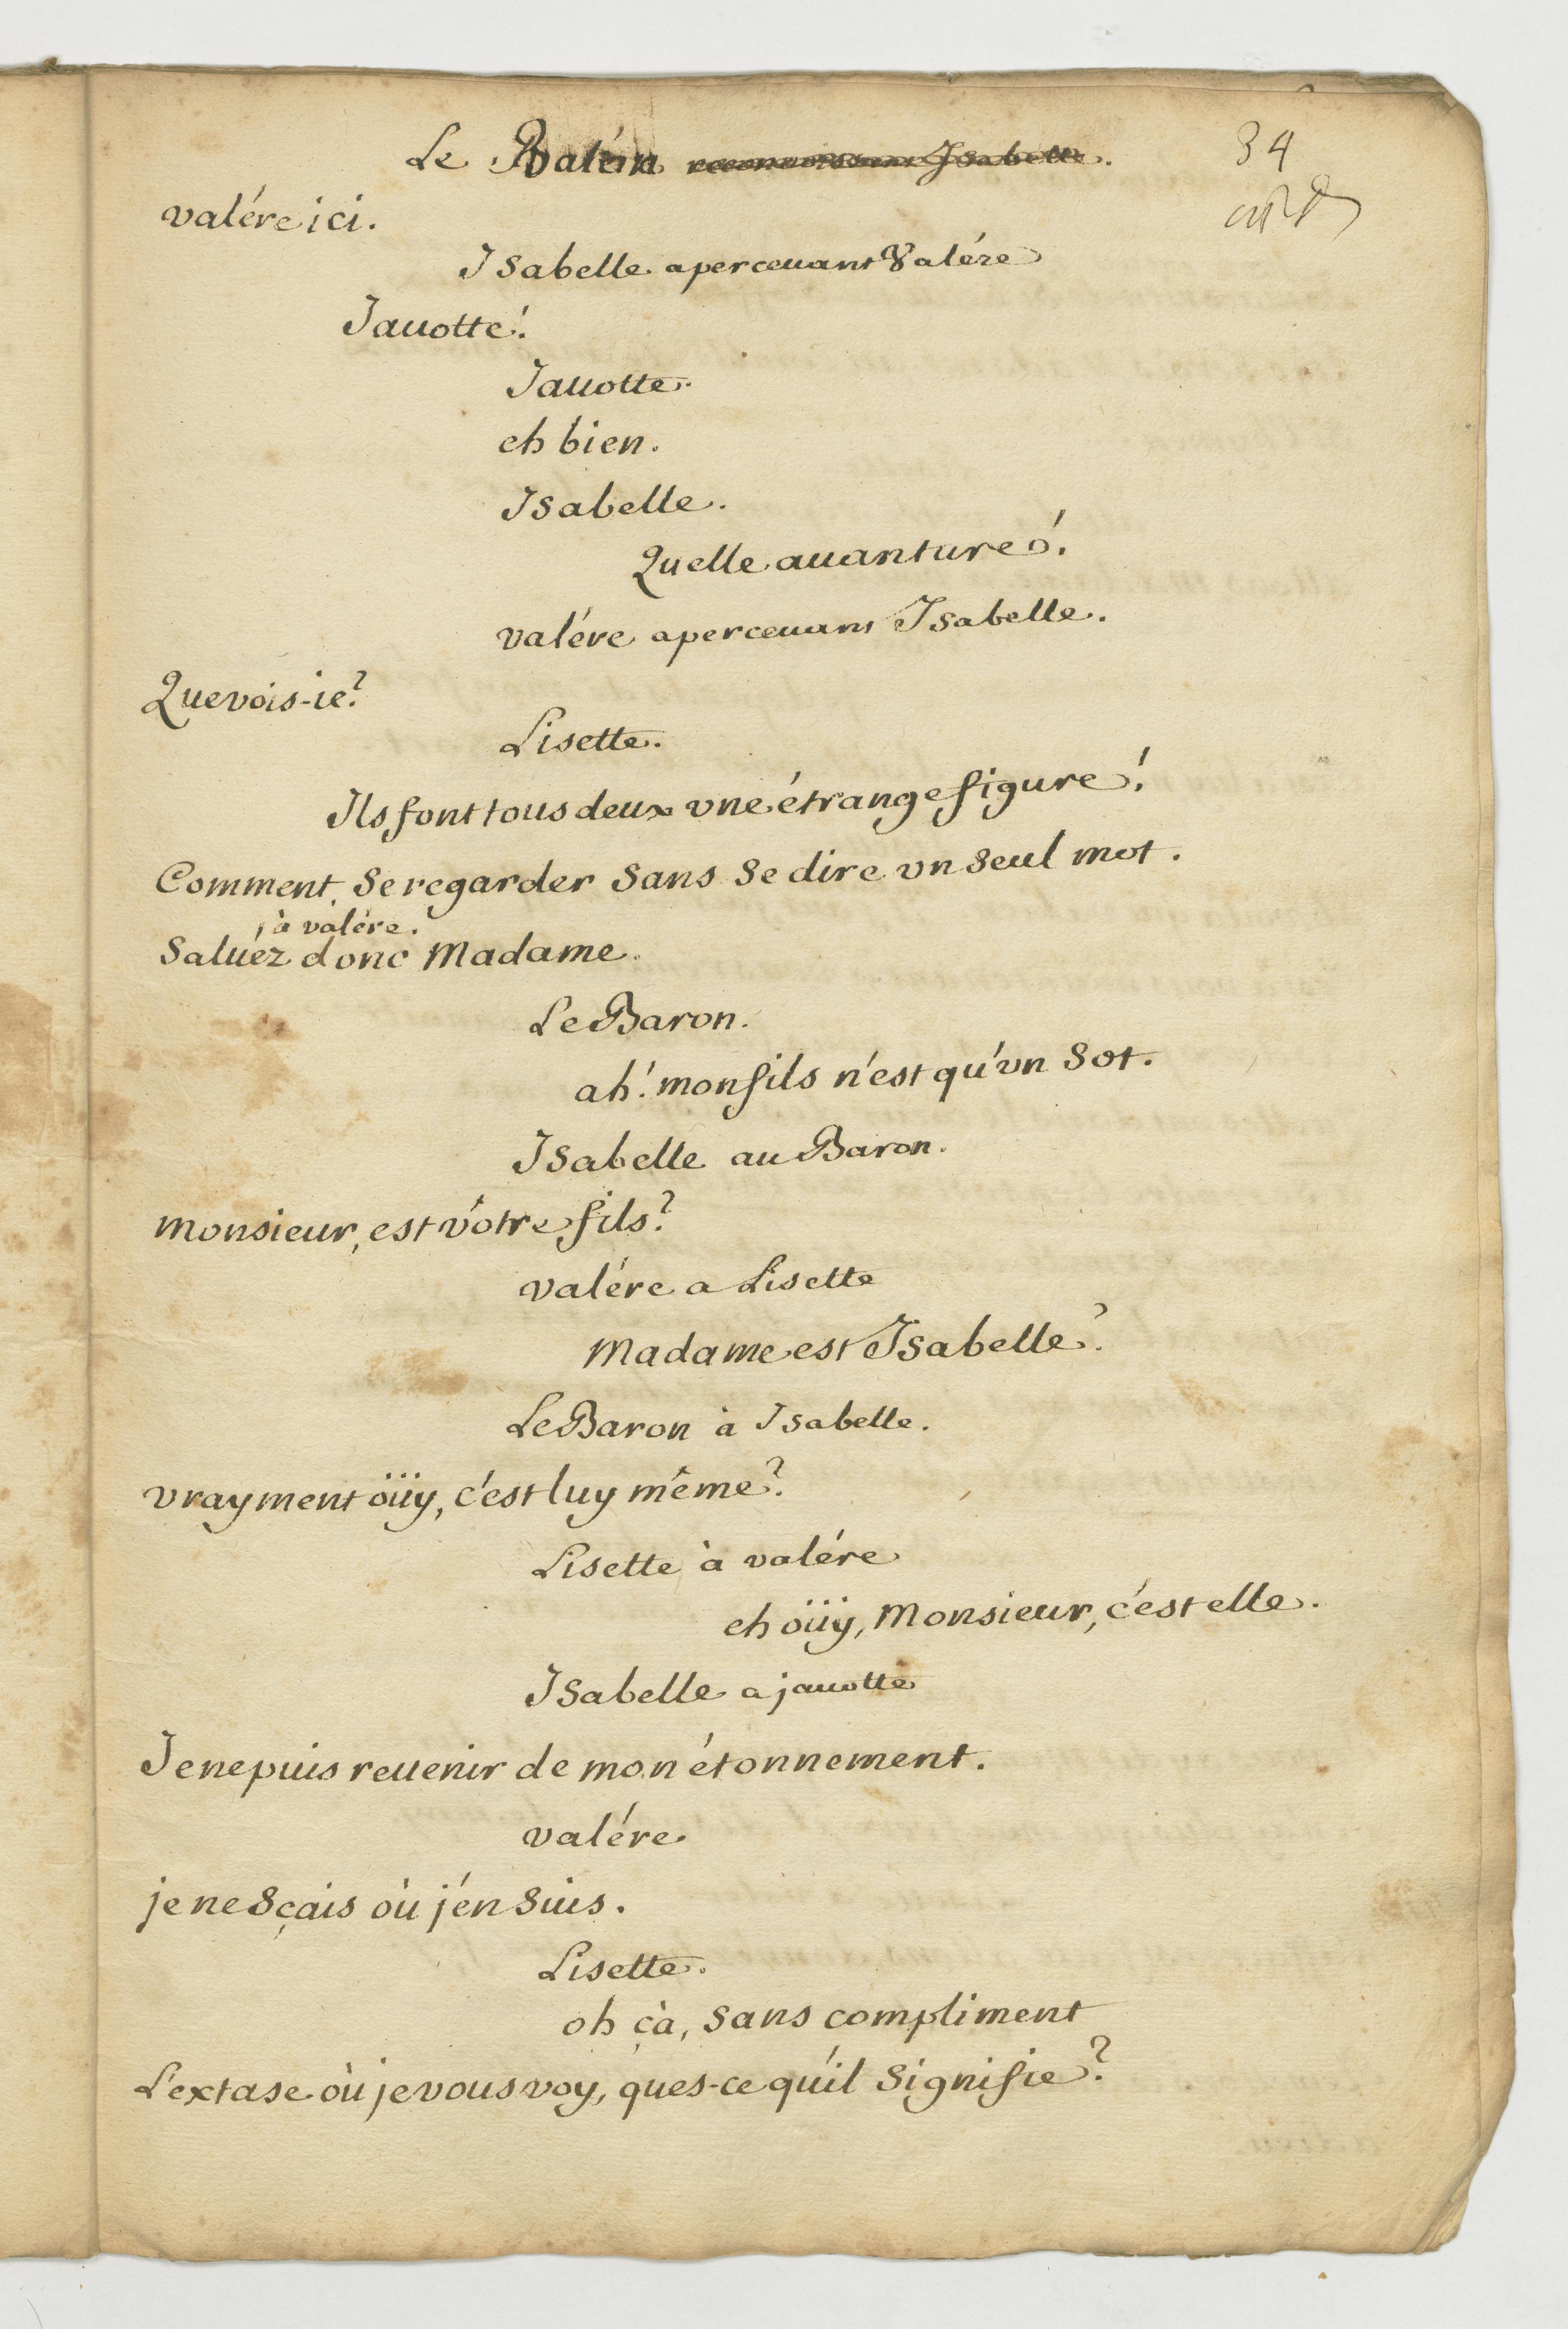 Le Baron reconnoissant Isabelle.
34
valére ici.
Isabelle aperceuant Valére
Jauotte!
Jauotte.
eh bien.
Isabelle.
Quelle auanture!
valére aperceuant Isabelle.
Que vois-ie?
Lisette.
Ils font tous deux vne étrange figure!
Comment, se regarder sans se dire vn seul mot.
à valére.
Saluéz donc Madame.
Le Baron.
ah! mon fils n'est qu'vn sot.
Isabelle au Baron.
monsieur, est vôtre fils?
valére a Lisette
Madame est Isabelle?
Le Baron à Isabelle.
vrayment oüy, c'est luy même?
Lisette à valére
eh oüy, Monsieur, c'est elle.
Isabelle a jauotte
Je ne puis reuenir de mon étonnement.
valére.
je ne sçais où j'én suis.
Lisette.
oh çà, sans compliment
L'extase où je vous voy, ques-ce qu'il signifie?